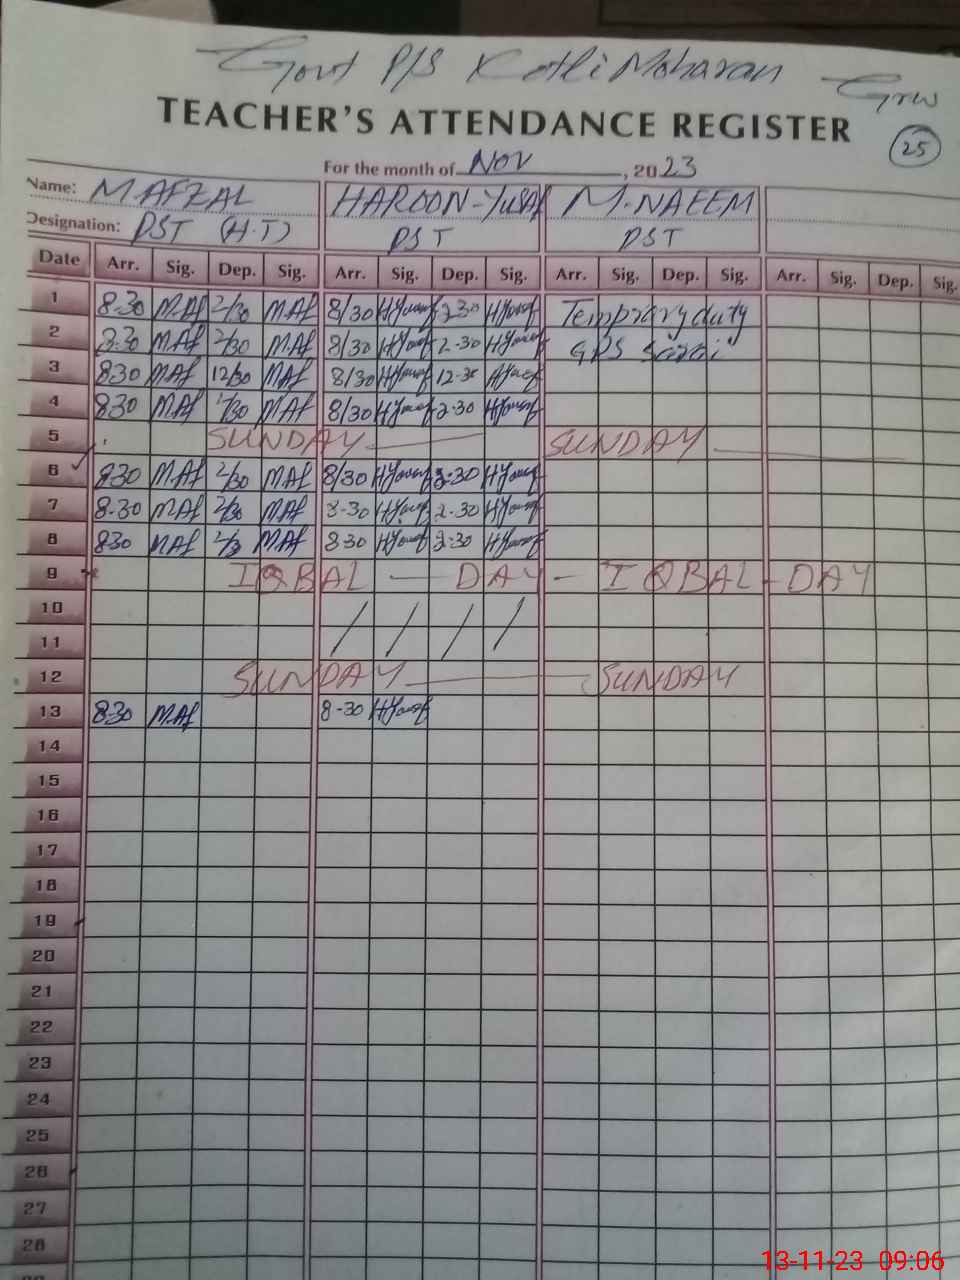 Govt P/S Kotli Moharan Grw
TEACHER'S ATTENDANCE REGISTER
25
For the month of NOV, 2023
Name: M AFZAL HAROON-Yusaf M-NAEEM
Designation: PST (H.T) PST PST
Date Arr. Sig. Dep. Sig. Arr. Sig. Dep. Sig. Arr. Sig. Dep. Sig. Arr. Sig. Dep. Sig.
1 8-30 MAf 2/30 MAf 8/30 HYousf 2-30 HYousf Temprary duty
2 8-30 MAf 2/30 MAf 8/30 HYousf 2-30 HYousf GPS
3 830 MAf 12/30 MAf 8/30 HYousf 12-30 HYousf
4 830 MAf 2/30 MAf 8/30 HYousf 2-30 HYousf
5 SUNDAY SUNDAY
6 830 MAf 2/30 MAf 8/30 HYousf 2-30 HYousf
7 8-30 MAf 2/30 MAf 8-30 HYousf 2-30 HYousf
8 830 MAf 2/3 MAf 830 HYousf 2-30 HYousf
9 IQBAL — DAY - IQBAL - DAY
10
11 / / / /
12 SUNDAY SUNDAY
13 8-30 MAf 8-30 HYousf
14
15
16
17
18
19
20
21
22
23
24
25
26
27
28
13-11-23 09:06